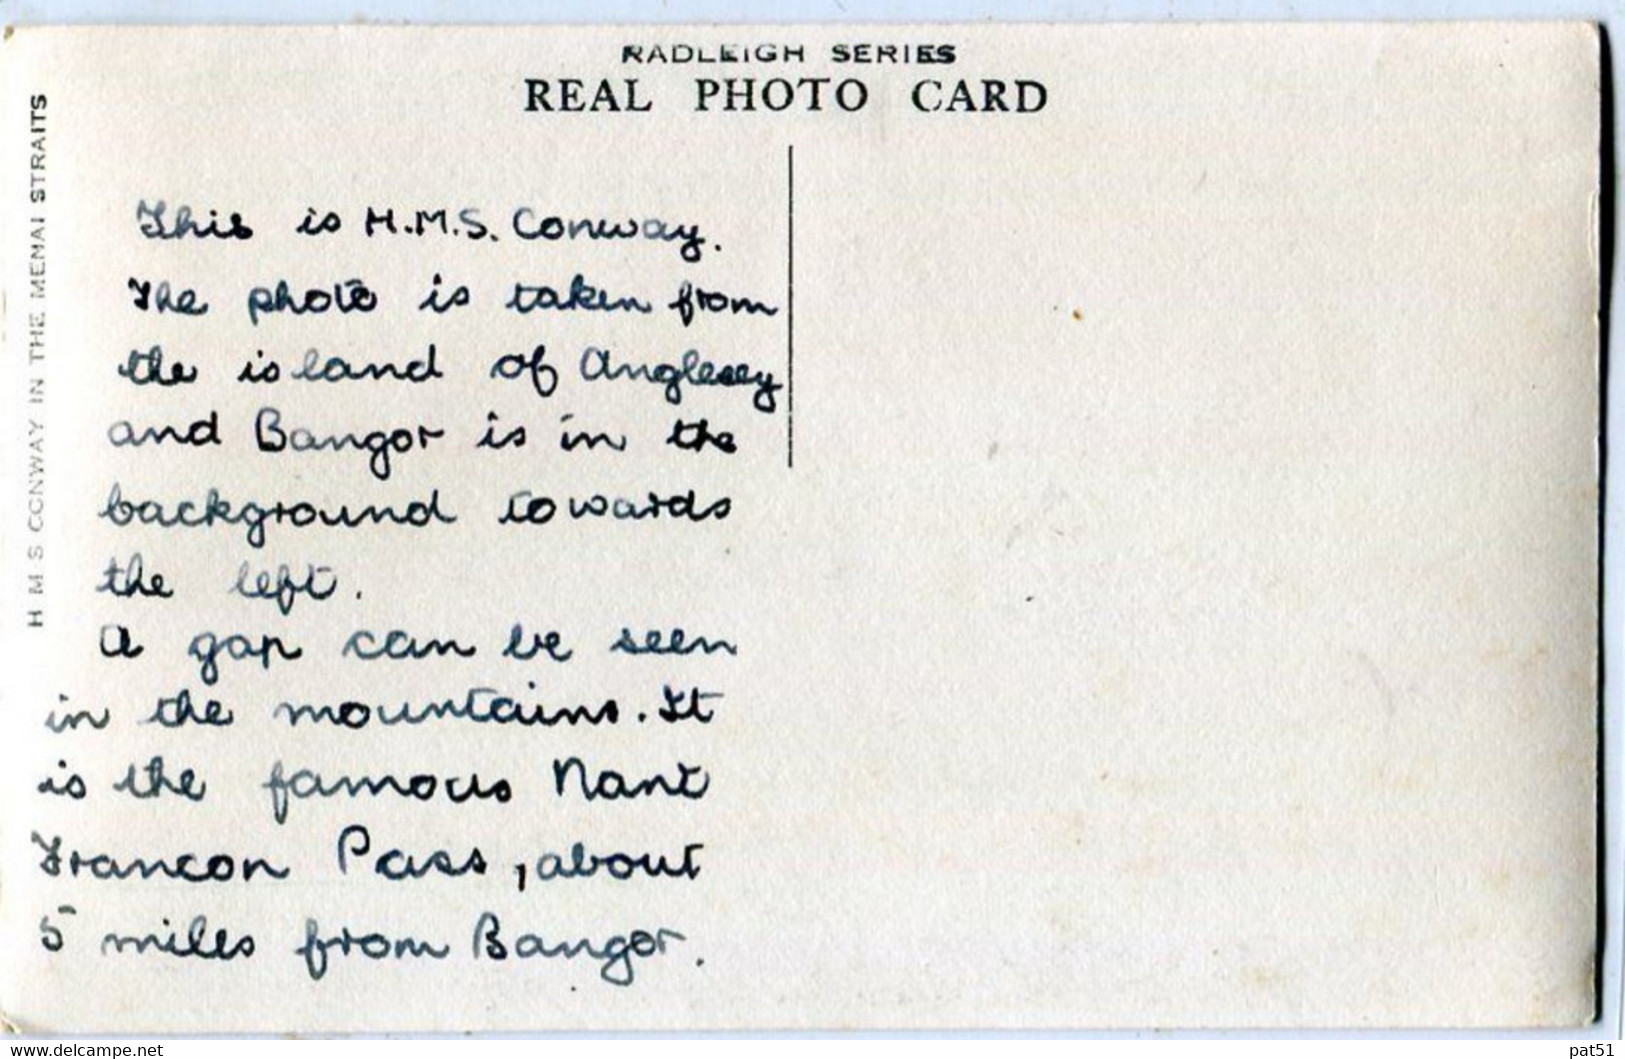 RADLEIGH SERIES
REAL PHOTO CARD
H M S CONWAY IN THE MENAI STRAITS
This is H.M.S. Conway.
The photo is taken from
the island of Anglesey
and Bangor is in the
background towards
the left.
A gap can be seen
in the mountains. It
is the famous Nant
Francon Pass, about
5 miles from Bangor.
delcampe.net
pat51